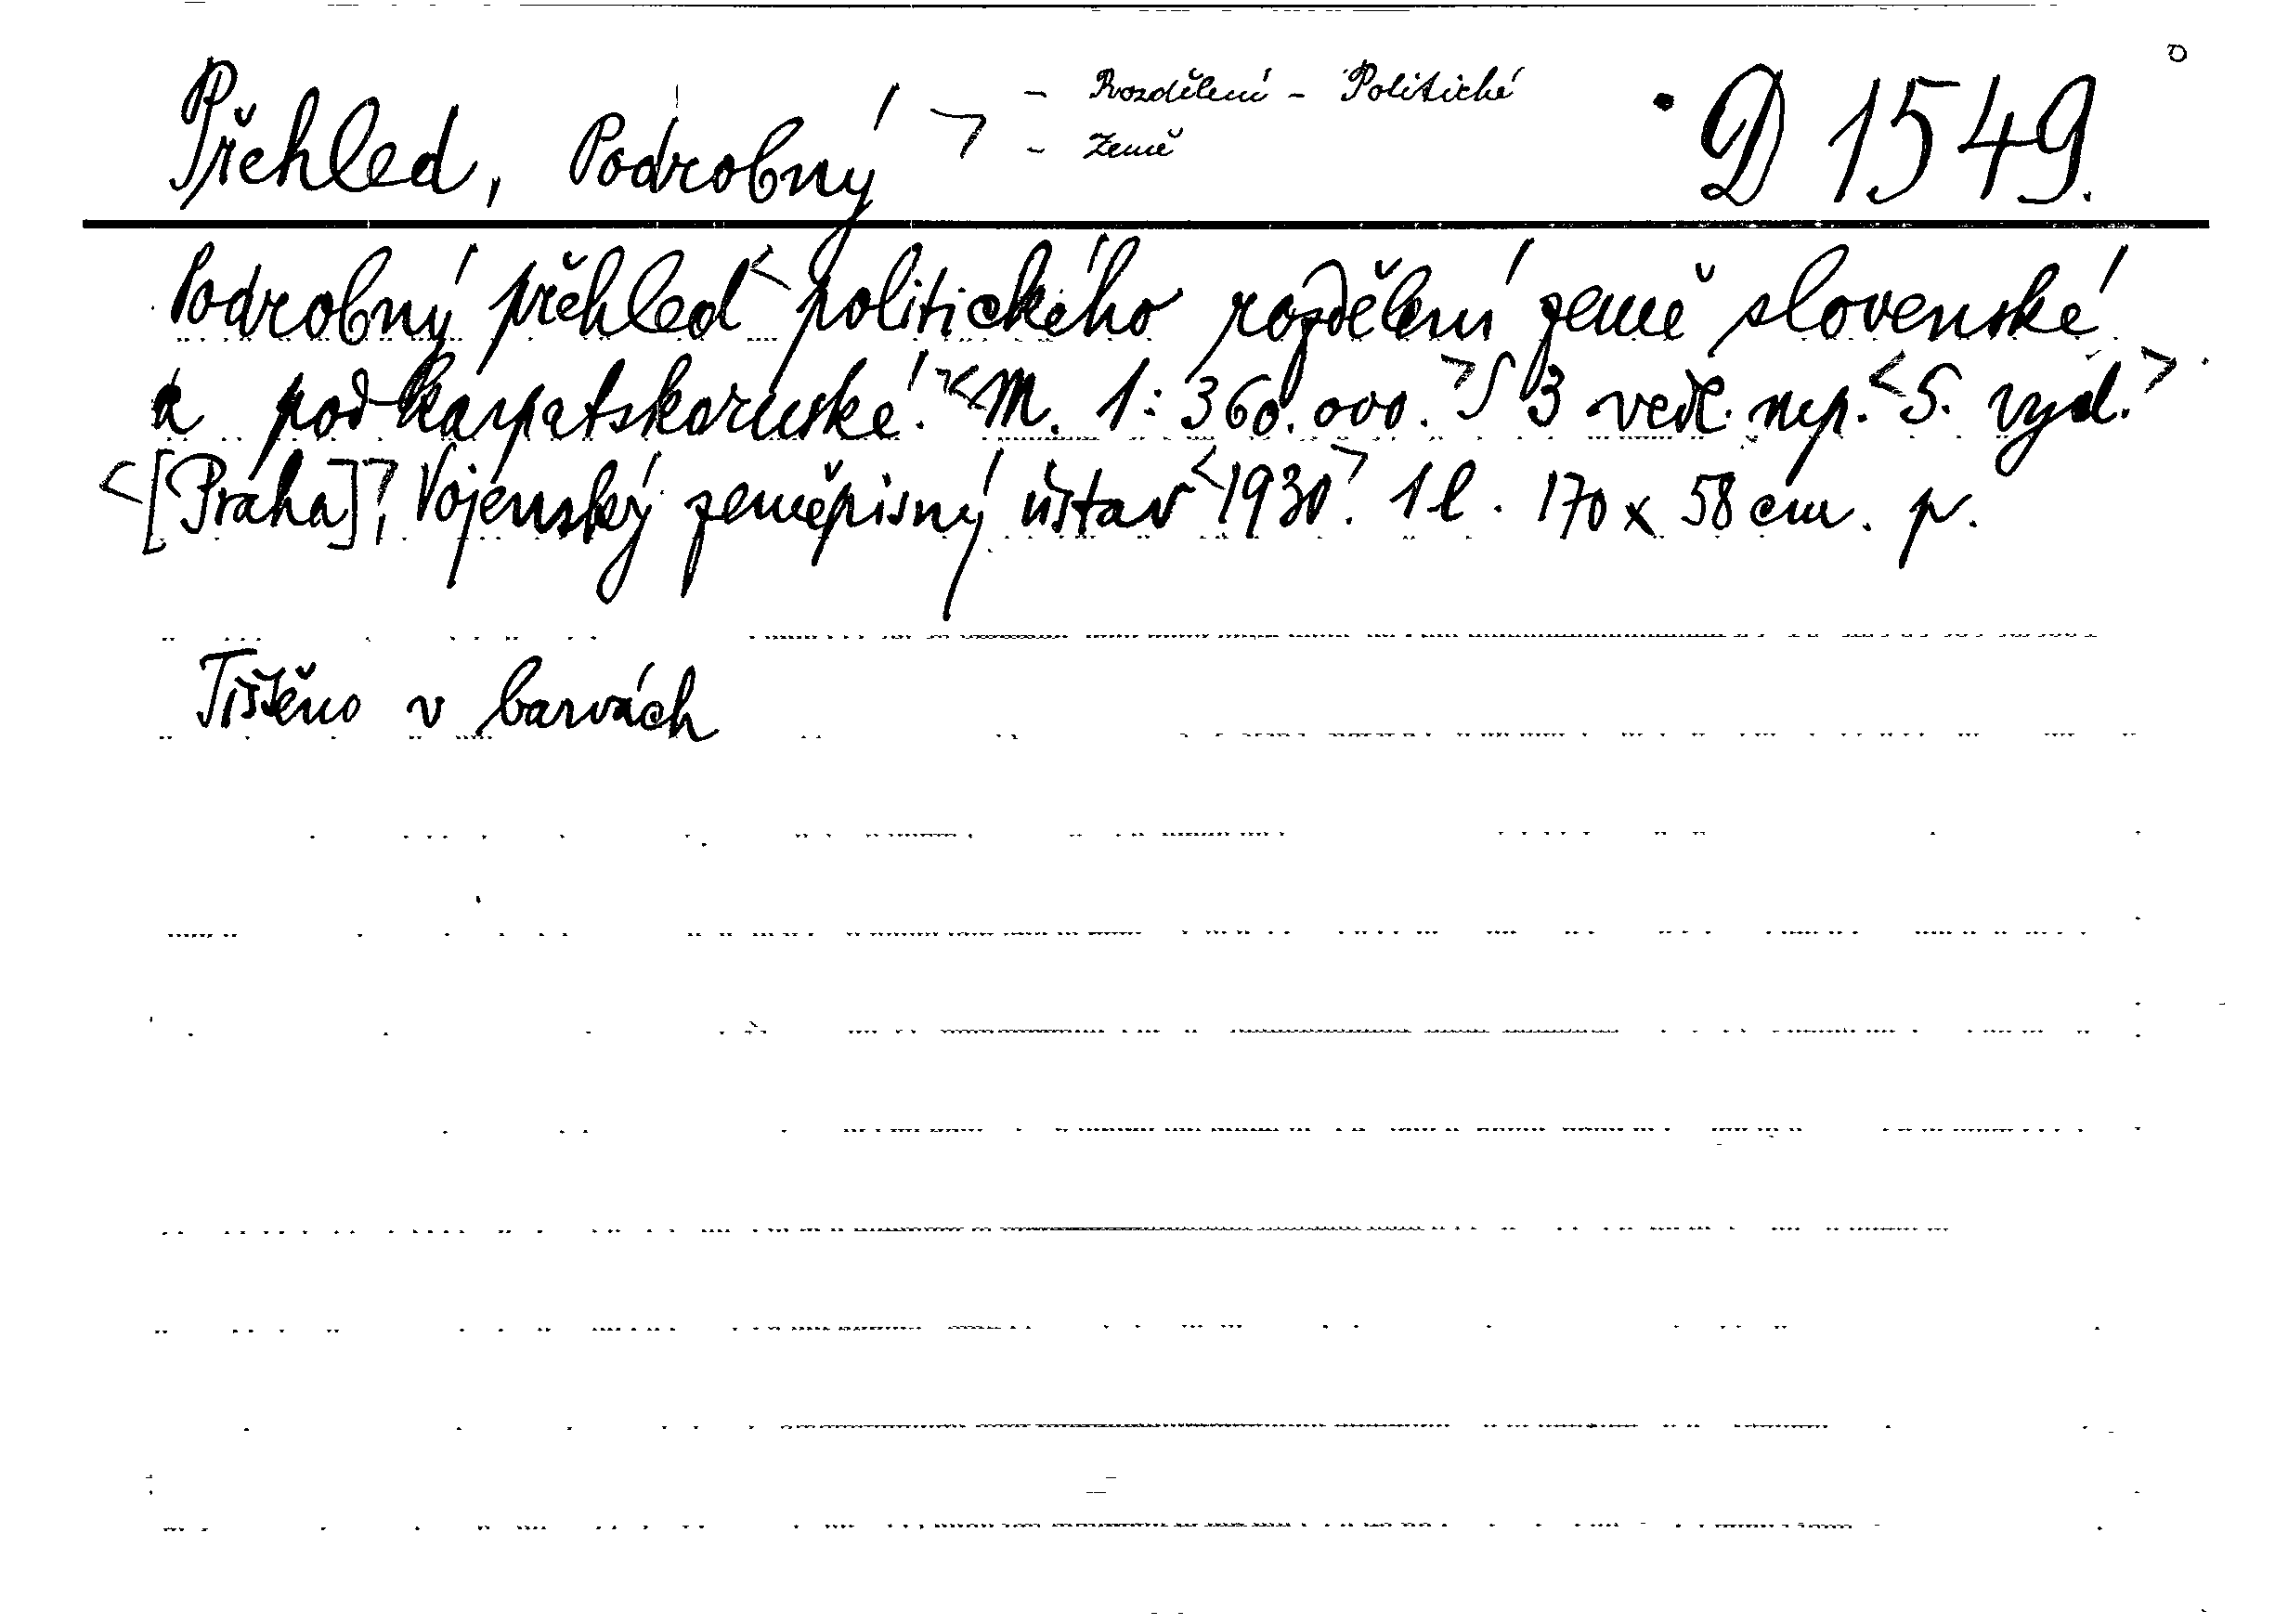 Přehled, Podrobný > - Rozdělení - Politické D 1549.
- Země
Podrobný přehled < politického rozdělení země slovenské
a podkarpatskoruské. > < M. 1:360.000. > S 3 vedl. nep. < 5. vyd. >
< [Praha] >, Vojenský zeměpisný ústav < 1930 >. 1 l. 170 x 58 cm. p.
Tištěno v barvách